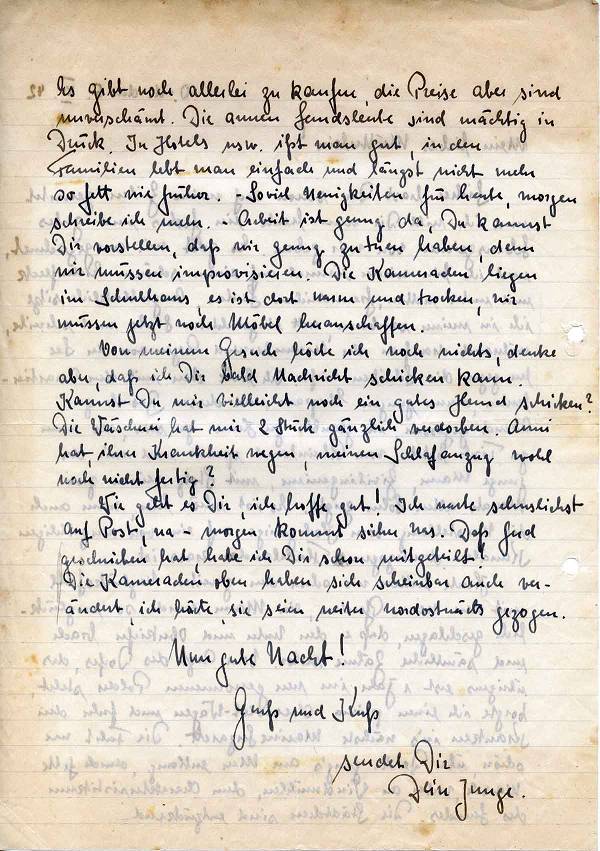 Es gibt noch allerlei zu kaufen, die Preise aber sind
unverschämt. Die armen Landsleute sind mächtig in
Druck. In Hotels usw. ißt man gut, in den
Familien lebt man einfach und längst nicht mehr
so fett wie früher. - Soviel Neuigkeiten für heute, morgen
schreibe ich mehr. - Arbeit ist genug da, Du kannst
Dir vorstellen, daß wir genug zu tuen haben, denn
wir müssen improvisieren. Die Kameraden liegen
im Schulhaus, es ist dort warm und trocken, wir
müssen jetzt noch Möbel heranschaffen.
Von meinem Gesuch hörte ich noch nichts, denke
aber, daß ich Dir bald Nachricht schicken kann.
Kannst Du mir vielleicht noch ein gutes Hemd schicken?
Die Wäscherei hat mir 2 Stück gänzlich verdorben. Anni
hat, ihrer Krankheit wegen, meinen Schlafanzug wohl
noch nicht fertig?
Wie geht es Dir, ich hoffe gut! Ich warte sehnlichst
auf Post, na - morgen kommt sicher was. Daß
geschrieben hat, habe ich Dir schon mitgeteilt!
Die Kameraden oben haben sich scheinbar auch ver-
ändert, ich hörte, sie seien weiter nordostwärts gezogen.
Nun gute Nacht!
Gruß und Kuß
sendet Dir
Dein Junge.